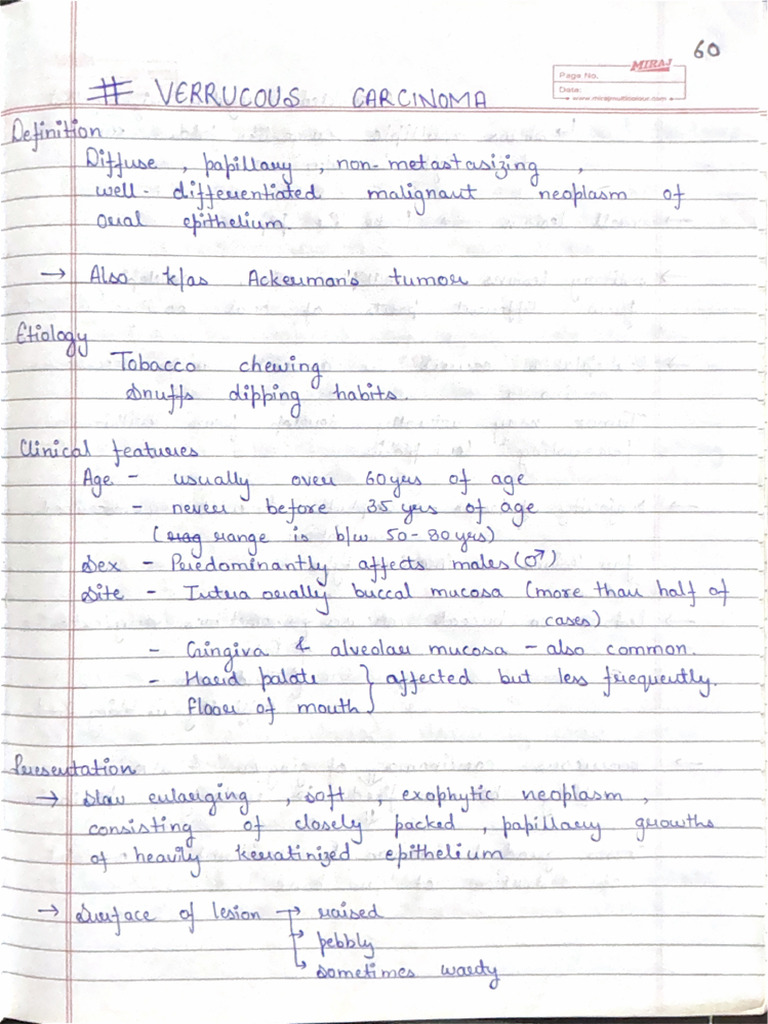 60
MIRAJ
Page No.
Date:
www.mirajmulticolour.com
# VERRUCOUS CARCINOMA
Definition
Diffuse, papillary, non-metastasizing,
well-differentiated malignant neoplasm of
oral epithelium.
→ Also k/as Ackerman's tumor
Etiology
Tobacco chewing
Snuffs dipping habits.
Clinical features
Age - usually over 60yrs of age
- never before 35 yrs of age
(rang range is b/w 50-80yrs)
Sex - Predominantly affects males (♂)
Site - Intra orally buccal mucosa (more than half of
cases)
- Gingiva & alveolar mucosa - also common.
- Hard palate } affected but less frequently.
floor of mouth
Presentation
→ Slow enlarging, soft, exophytic neoplasm,
consisting of closely packed, papillary growths
of heavily keratinized epithelium
→ Surface of lesion → raised
→ pebbly
→ sometimes warty